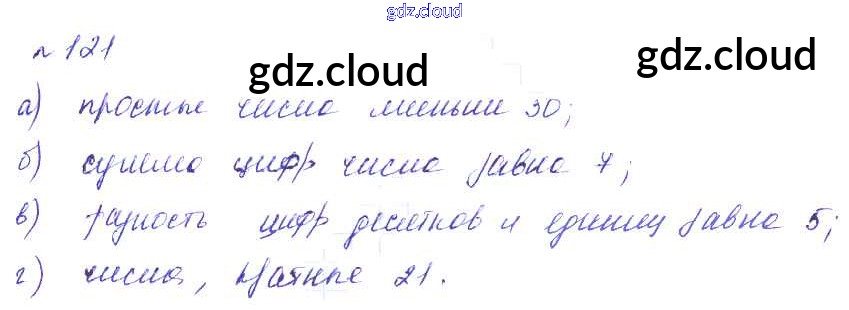 gdz.cloud
№ 121
gdz.cloud
gdz.cloud
а) простые числа меньши 30;
б) сумма цифр числа равна 7;
в) разность цифр десятков и единиц равна 5;
г) числа, кратные 21.